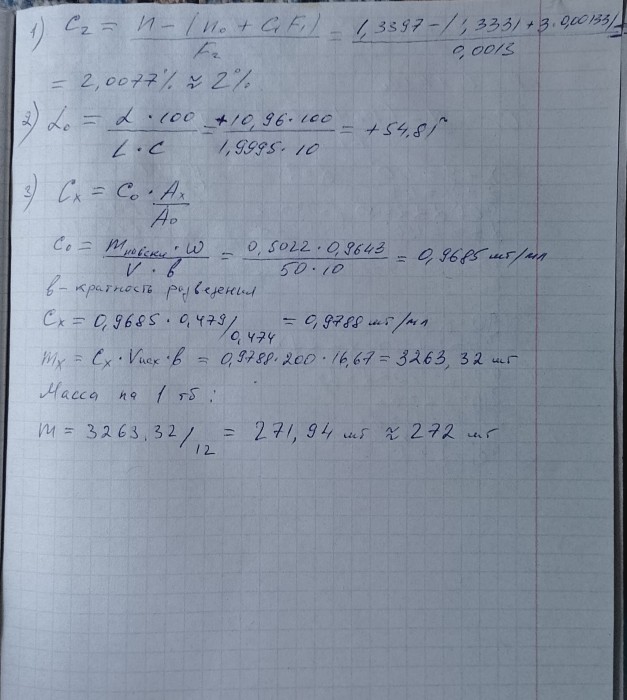 1) C₂ = n - (n₀ + C₁F₁) / F₂ = 1,3397 - (1,3331 + 3 · 0,00133) / 0,0013 =
= 2,0077% ≈ 2%
2) α₀ = α · 100 / L · C = +10,96 · 100 / 1,9995 · 10 = +54,81°
3) Cₓ = C₀ · Aₓ / A₀
C₀ = mнавески · ω / V · в = 0,5022 · 0,9643 / 50 · 10 = 0,9685 мг/мл
в - кратность розведения
Cₓ = 0,9685 · 0,479/0,474 = 0,9788 мг/мл
mₓ = Cₓ · Vисх · в = 0,9788 · 200 · 16,67 = 3263,32 мг
Масса на 1 тб:
m = 3263,32/12 = 271,94 мг ≈ 272 мг